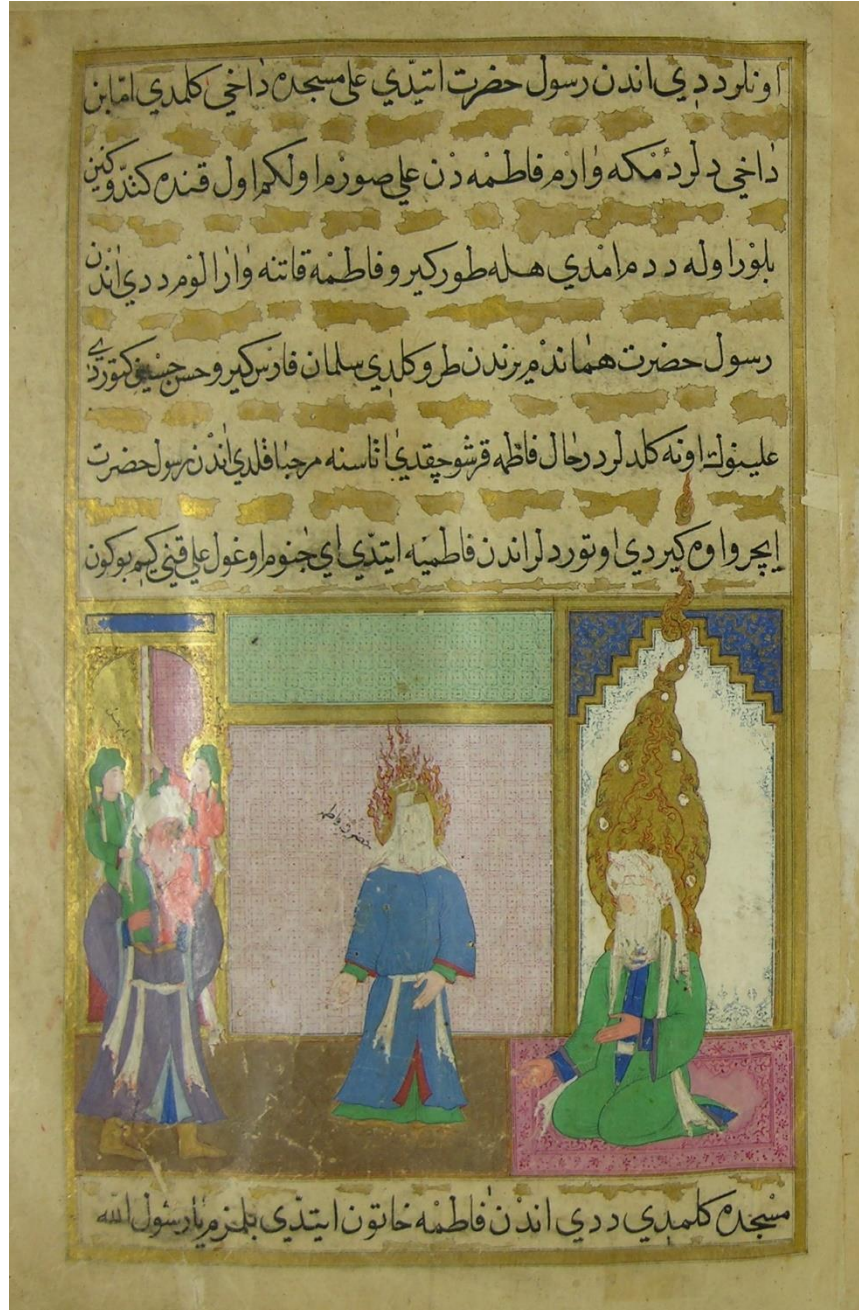 اونلر ددي اندن رسول حضرت ايتدي علي مسجده داخي كلمدي امّا بن
داخي دلردمكه وارم فاطمه دن علي صورم اولكم اول قنده كندوكين
بلور اوله ددم امدي هله طور كيرو فاطمه قاتنه وارالوم ددي اندن
رسول حضرت هماندم يرندن طرو كلدي سلمان فارس كيرو حسن حسيني كتوردي
علينوك اونه كلدلر درحال فاطمه قرشو چقدي اتاسنه مرحبا قلدي اندن رسول حضرت
ايچرو اوه كيردي اوتوردلر اندن فاطميه ايتدي اي جنوم اوغول علي قني كيم بوكون
حضرت فاطمه
مسجده كلمدي ددي اندن فاطمه خاتون ايتدي بلمزم يا رسول الله